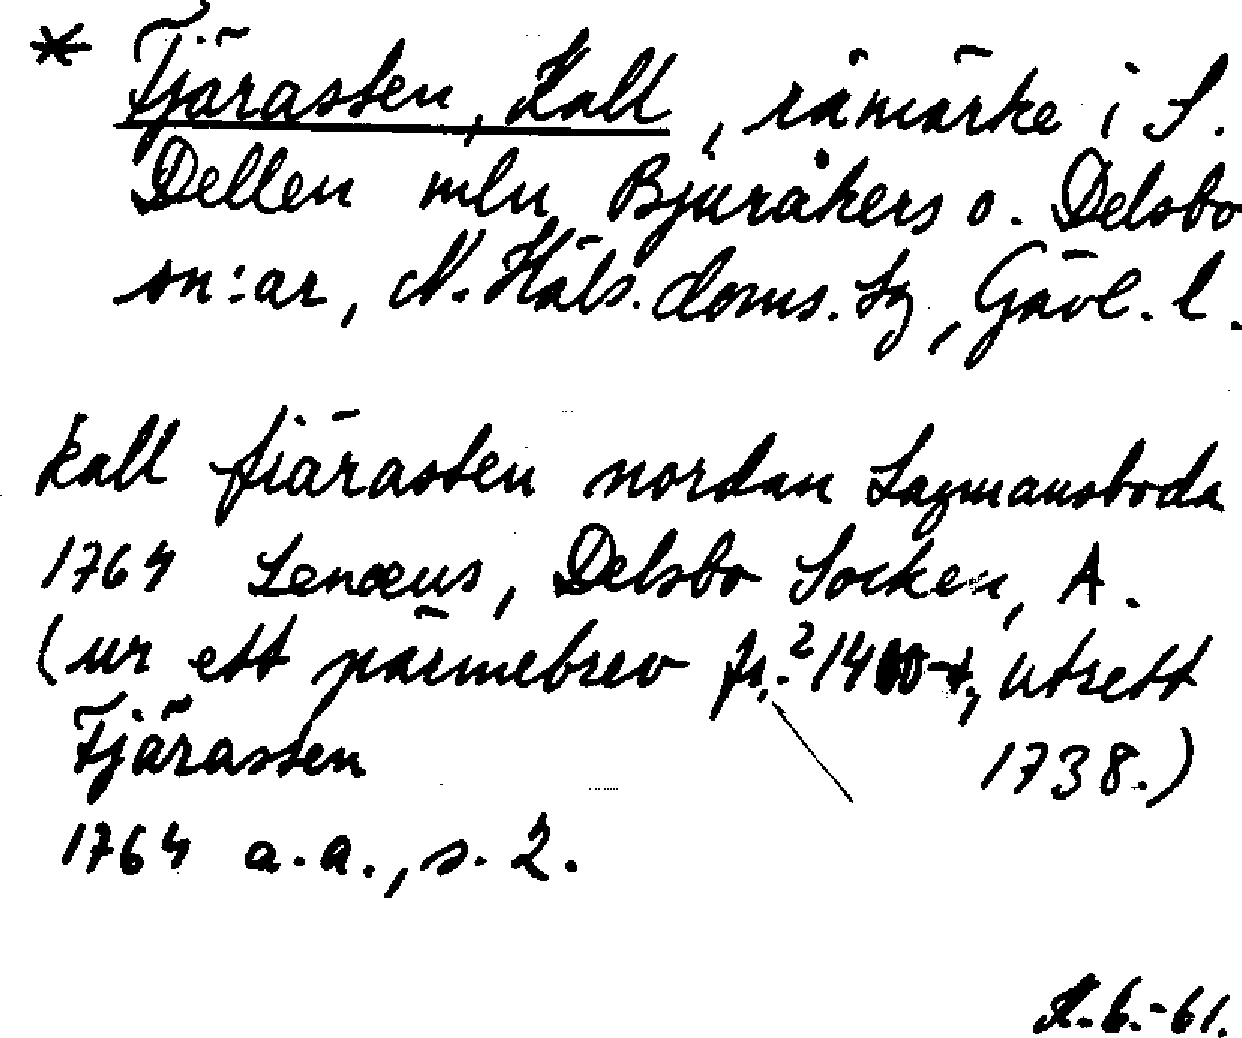 * Fjärasten, Kall, råmärke i S.
Dellen mln Bjuråkers o. Delsbo
sn:ar, N. Häls. doms. sg, Gävl. l.
kall fiärasten nordan Lagmansboda
1764 Lenæus, Delsbo Socken, A.
(ur ett pärmebrev fr. 1400-t, utsett
Fjärasten 1738.)
1764 a.a., s. 2.
R.B.-61.